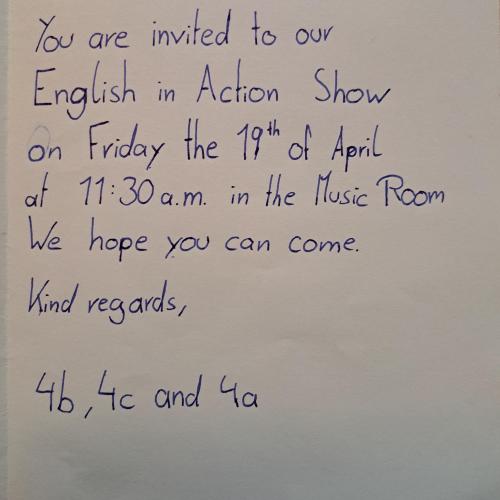 You are invited to our
English in Action Show
on Friday the 19th of April
at 11:30 a.m. in the Music Room
We hope you can come.
Kind regards,
4b, 4c and 4a